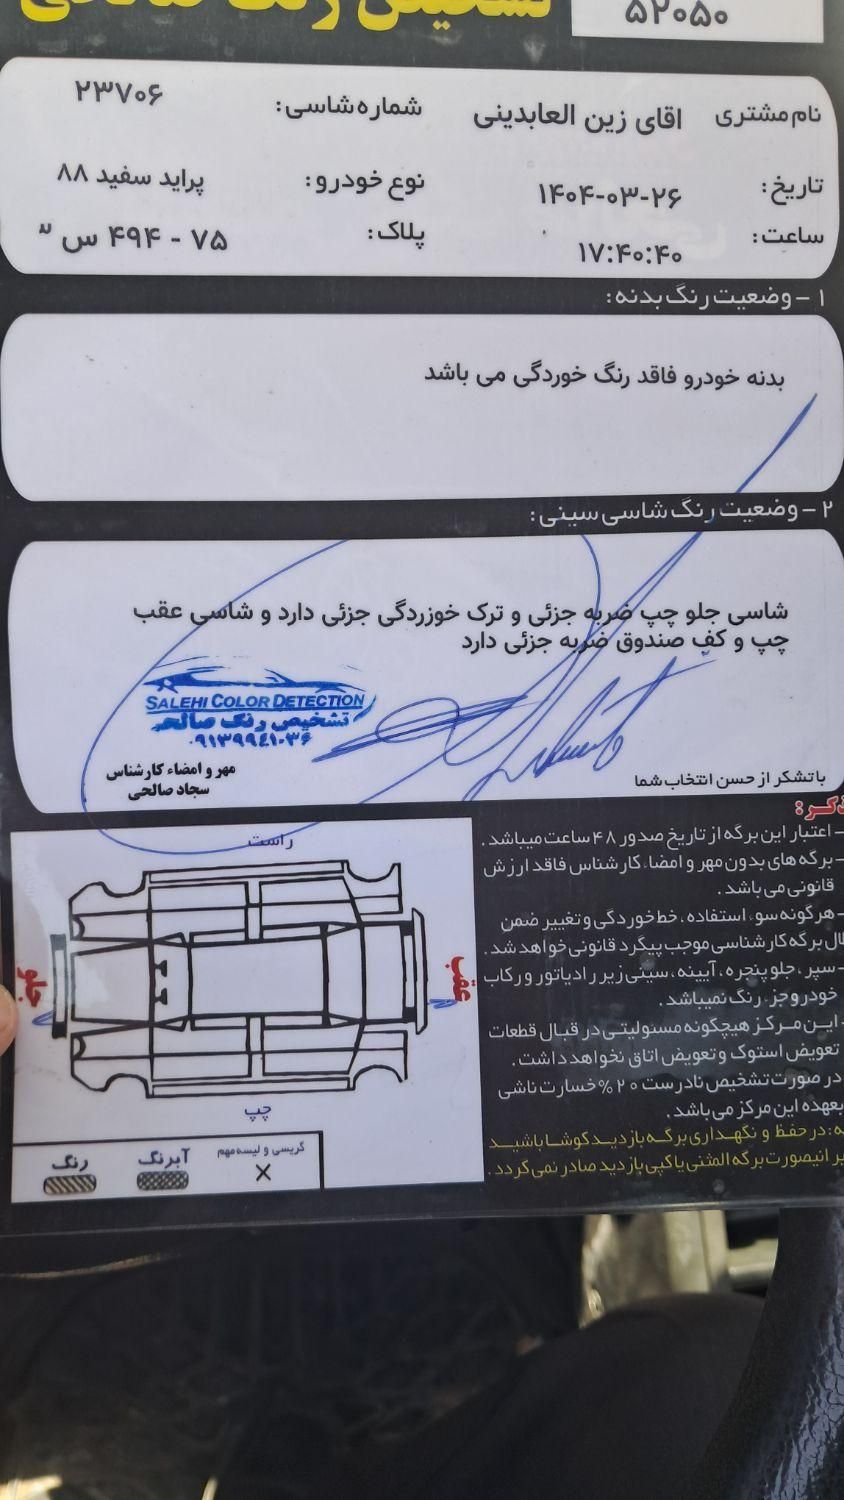 تشخیص رنگ صالحی
۵۲۰۵۰
نام مشتری اقای زین العابدینی
شماره شاسی: ۲۳۷۰۶
تاریخ: ۱۴۰۴-۰۳-۲۶
نوع خودرو: پراید سفید ۸۸
ساعت: ۱۷:۴۰:۴۰
پلاک: ۷۵ - ۴۹۴ س
۱ - وضعیت رنگ بدنه:
بدنه خودرو فاقد رنگ خوردگی می باشد
۲ - وضعیت رنگ شاسی سینی:
شاسی جلو چپ ضربه جزئی و ترک خوزردگی جزئی دارد و شاسی عقب
چپ و کف صندوق ضربه جزئی دارد
SALEHI COLOR DETECTION
تشخیص رنگ صالحی
۰۹۱۳۹۹۴۱۰۳۶
مهر و امضاء کارشناس
سجاد صالحی
باتشکر از حسن انتخاب شما
ذکر:
- اعتبار این برگه از تاریخ صدور ۴۸ ساعت میباشد.
- برگه های بدون مهر و امضاء کارشناس فاقد ارزش
قانونی می باشد.
- هرگونه سوء استفاده، خط خوردگی و تغییر ضمن
ال برگه کارشناسی موجب پیگرد قانونی خواهد شد.
- سپر، جلو پنجره، آیینه، سینی زیر رادیاتور و رکاب
خودرو جزء رنگ نمیباشد.
- ایـن مـرکـز هیچگونه مسئولیتی در قبال قطعات
تعویض استوک و تعویض اتاق نخواهد داشت.
در صورت تشخیص نادرست ۲۰% خسارت ناشی
بعهده این مرکز می باشد.
ه: در حفظ و نگهـداری برگـه بازدیـد کوشـا باشیـد
یر اینصورت برگه المثنی یا کپی بازدید صادر نمی گردد.
راست
جلو
عقب
چپ
رنگ
آبرنگ
گریسی و لیسه مهم
X